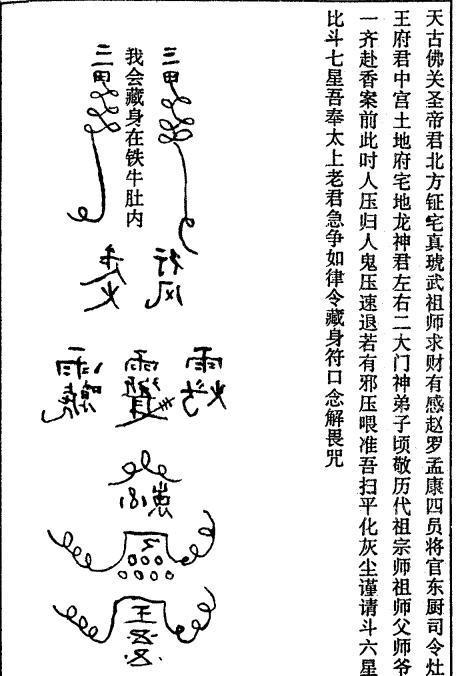 天古佛关圣帝君北方钲宅真琥武祖师求财有感赵罗孟康四员将官东厨司令灶
王府君中宫土地府宅地龙神君左右二大门神弟子顷敬历代祖宗师祖师父师爷
一齐赴香案前此时人压归人鬼压速退若有邪压喂准吾扫平化灰尘谨请斗六星
比斗七星吾奉太上老君急争如律令藏身符口念解畏咒
三甲
我会藏身在铁牛肚内
二田
行风
火
王